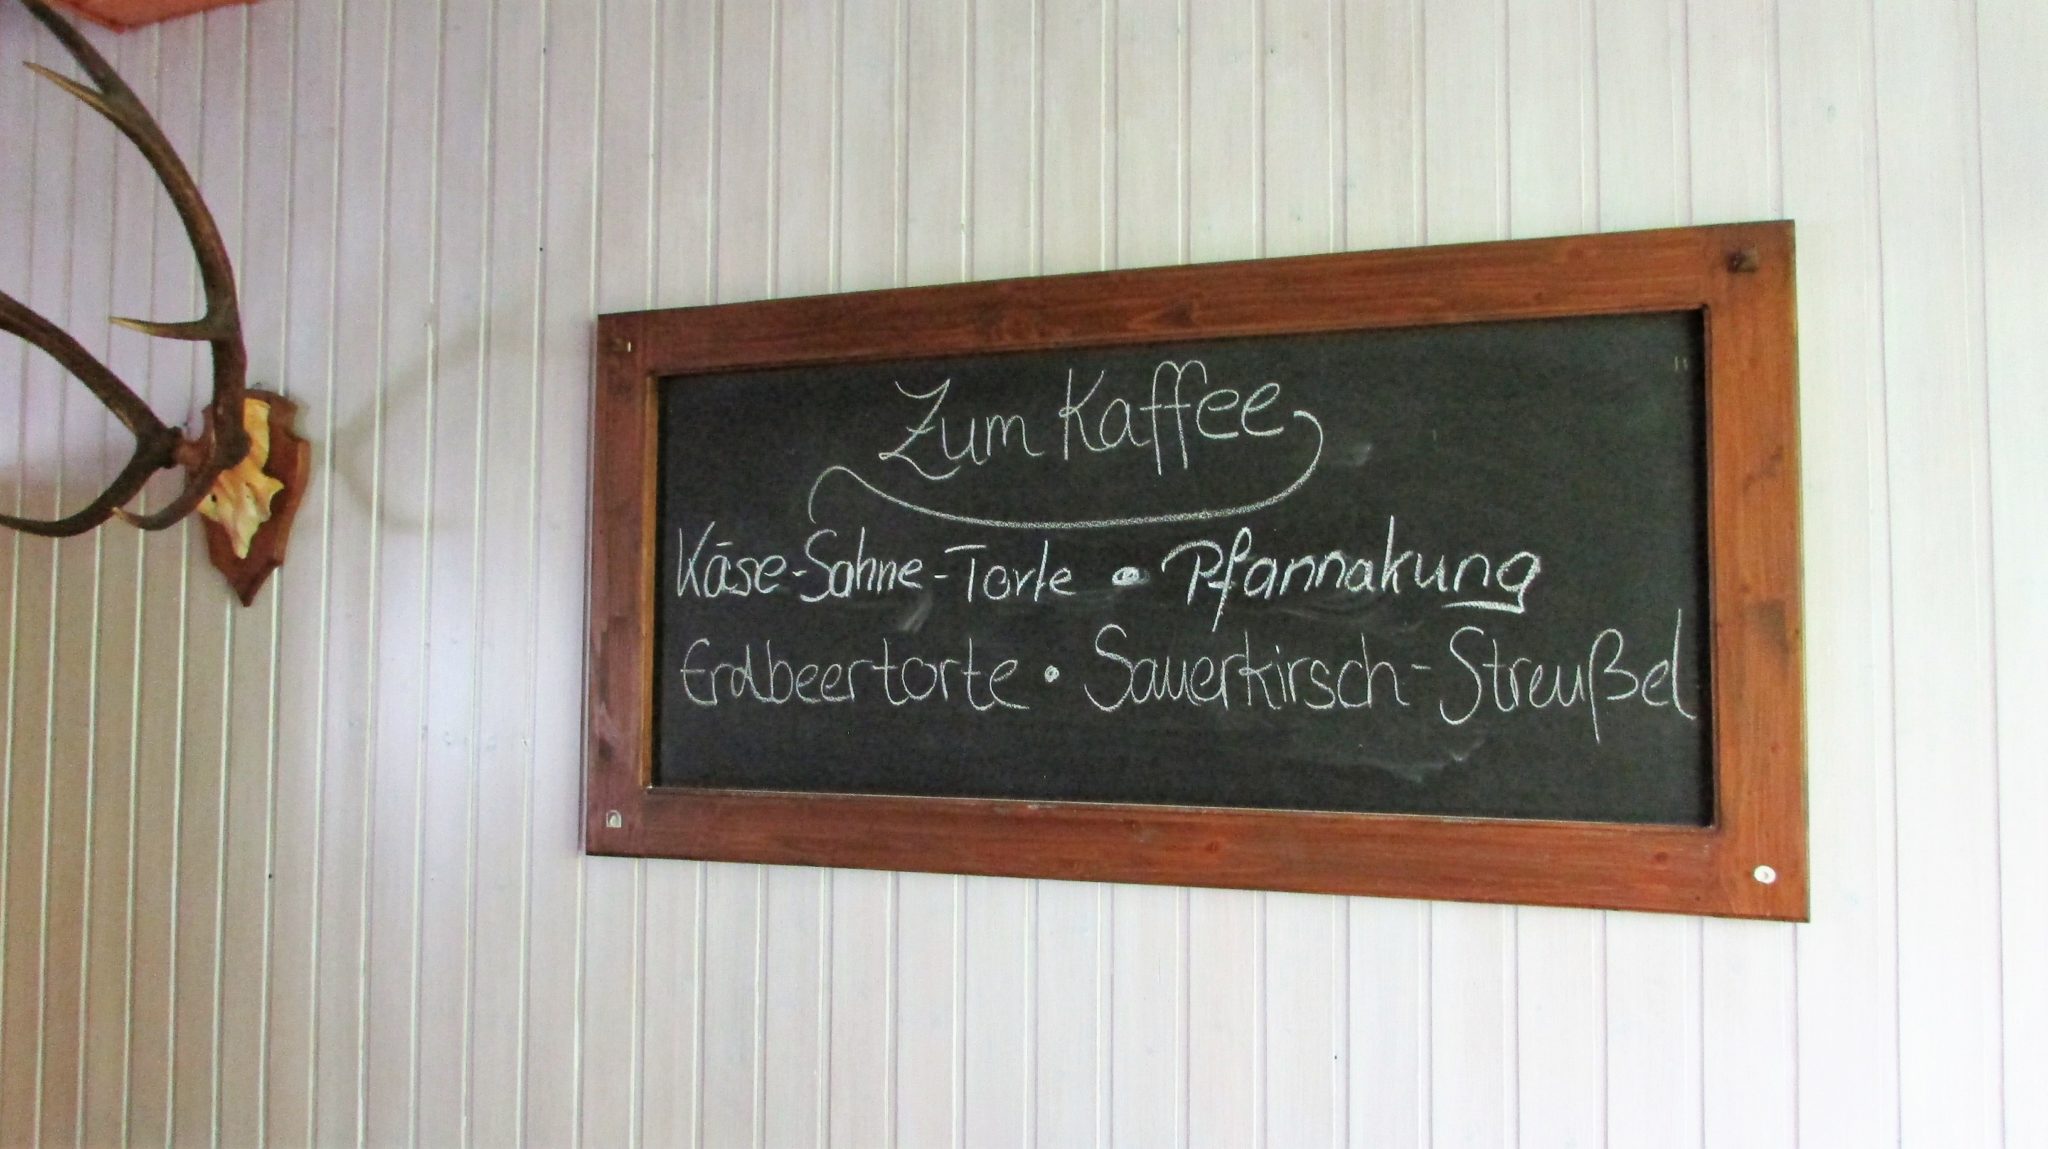 Zum Kaffee
Käse-Sahne-Torte • Pfannakung
Erdbeertorte • Sauerkirsch-Streußel